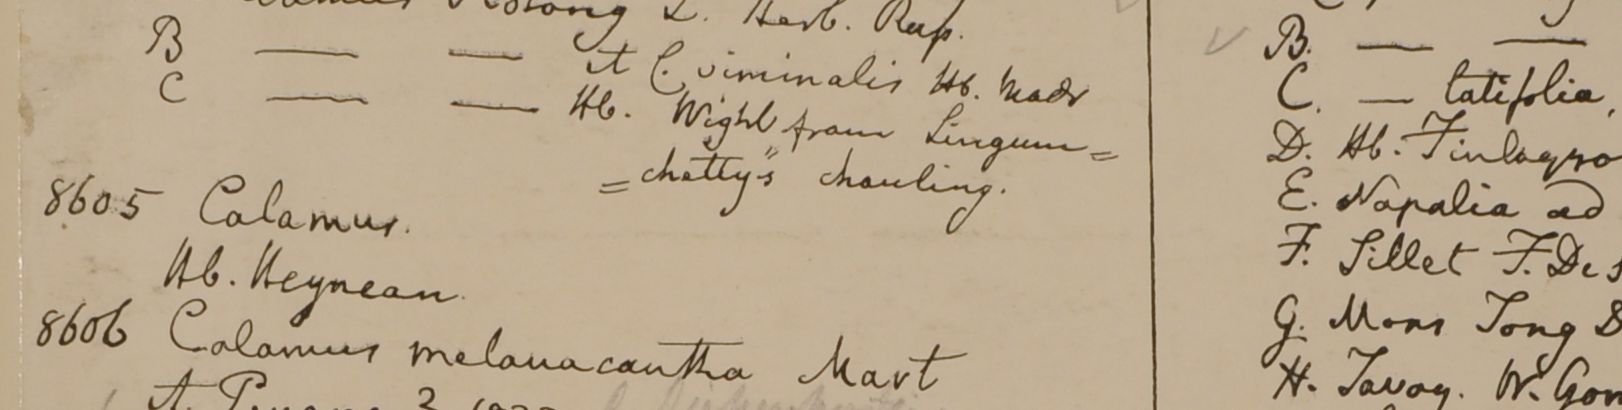 Rotang L. Herb. Rup.
B — — et C. viminalis Hb. Madr
C — — Hb. Wight from Lingum=
=chetty's chauling.
8605 Calamus.
Hb. Heynean.
8606 Calamus melanacantha Mart
A. Penang
B. — —
C. — latifolia,
D. Hb. Finlayso
E. Napalia ad
F. Sillet F. De S
G. Mons Tong D
H. Tavoy. W. Gom